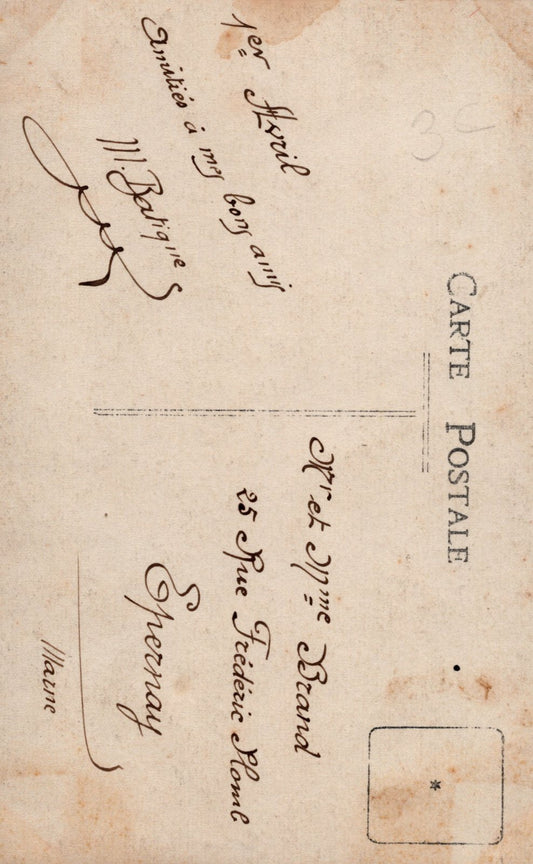 CARTE POSTALE
1er Avril
Amitiés à mes bons amis
M. Batigne
Mr et Mme Brand
25 Rue Frédéric Plomb
Epernay
Marne